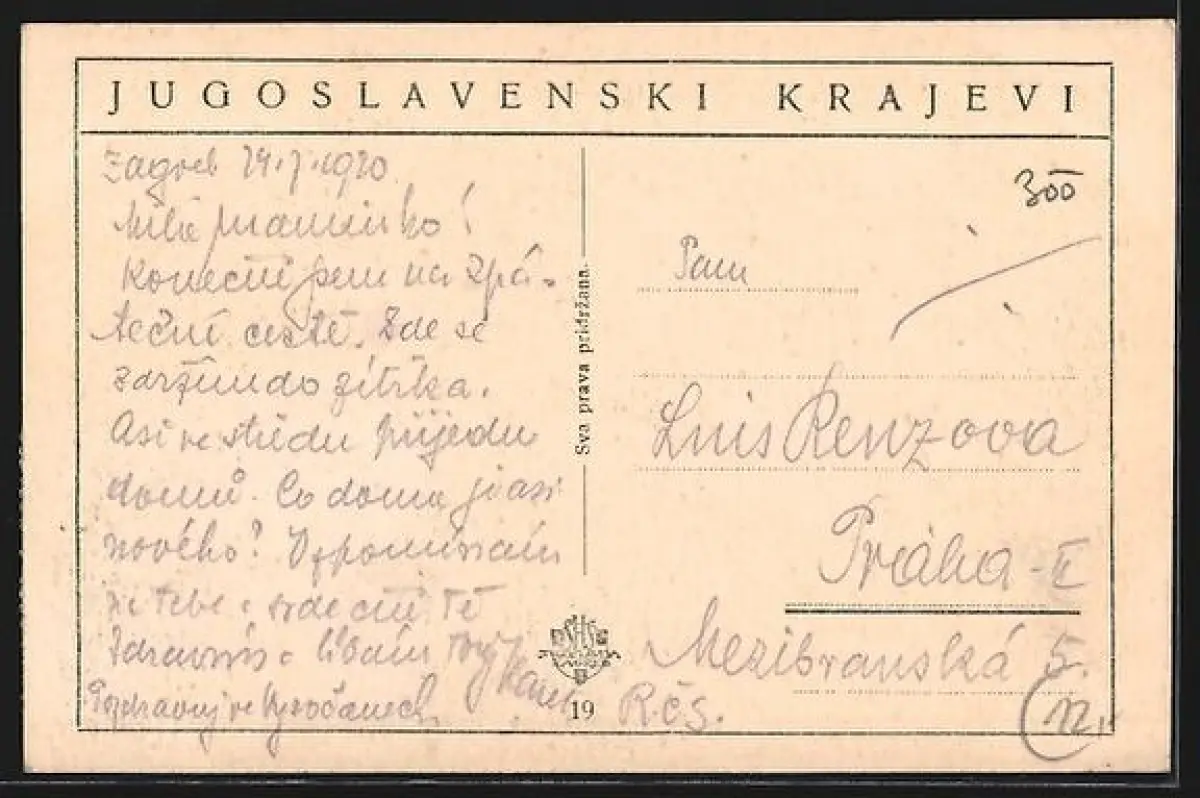 JUGOSLAVENSKI KRAJEVI
Zagreb 24.7.1920.
Milá maminko!
Konečně jsem na zpá-
teční cestě. Zde se
zdržím do zítřka.
Asi ve středu přijedu
domů. Co doma je asi
nového? Vzpomínám
na tebe a srdečně Tě
Zdravím a líbám Tvůj
Karel
Pozdravuj ve Vysočanech
Sva prava pridržana.
SHS
19
300
Paní
Renzova
Praha - II
Mezibranská 5.
R.č.s.
12